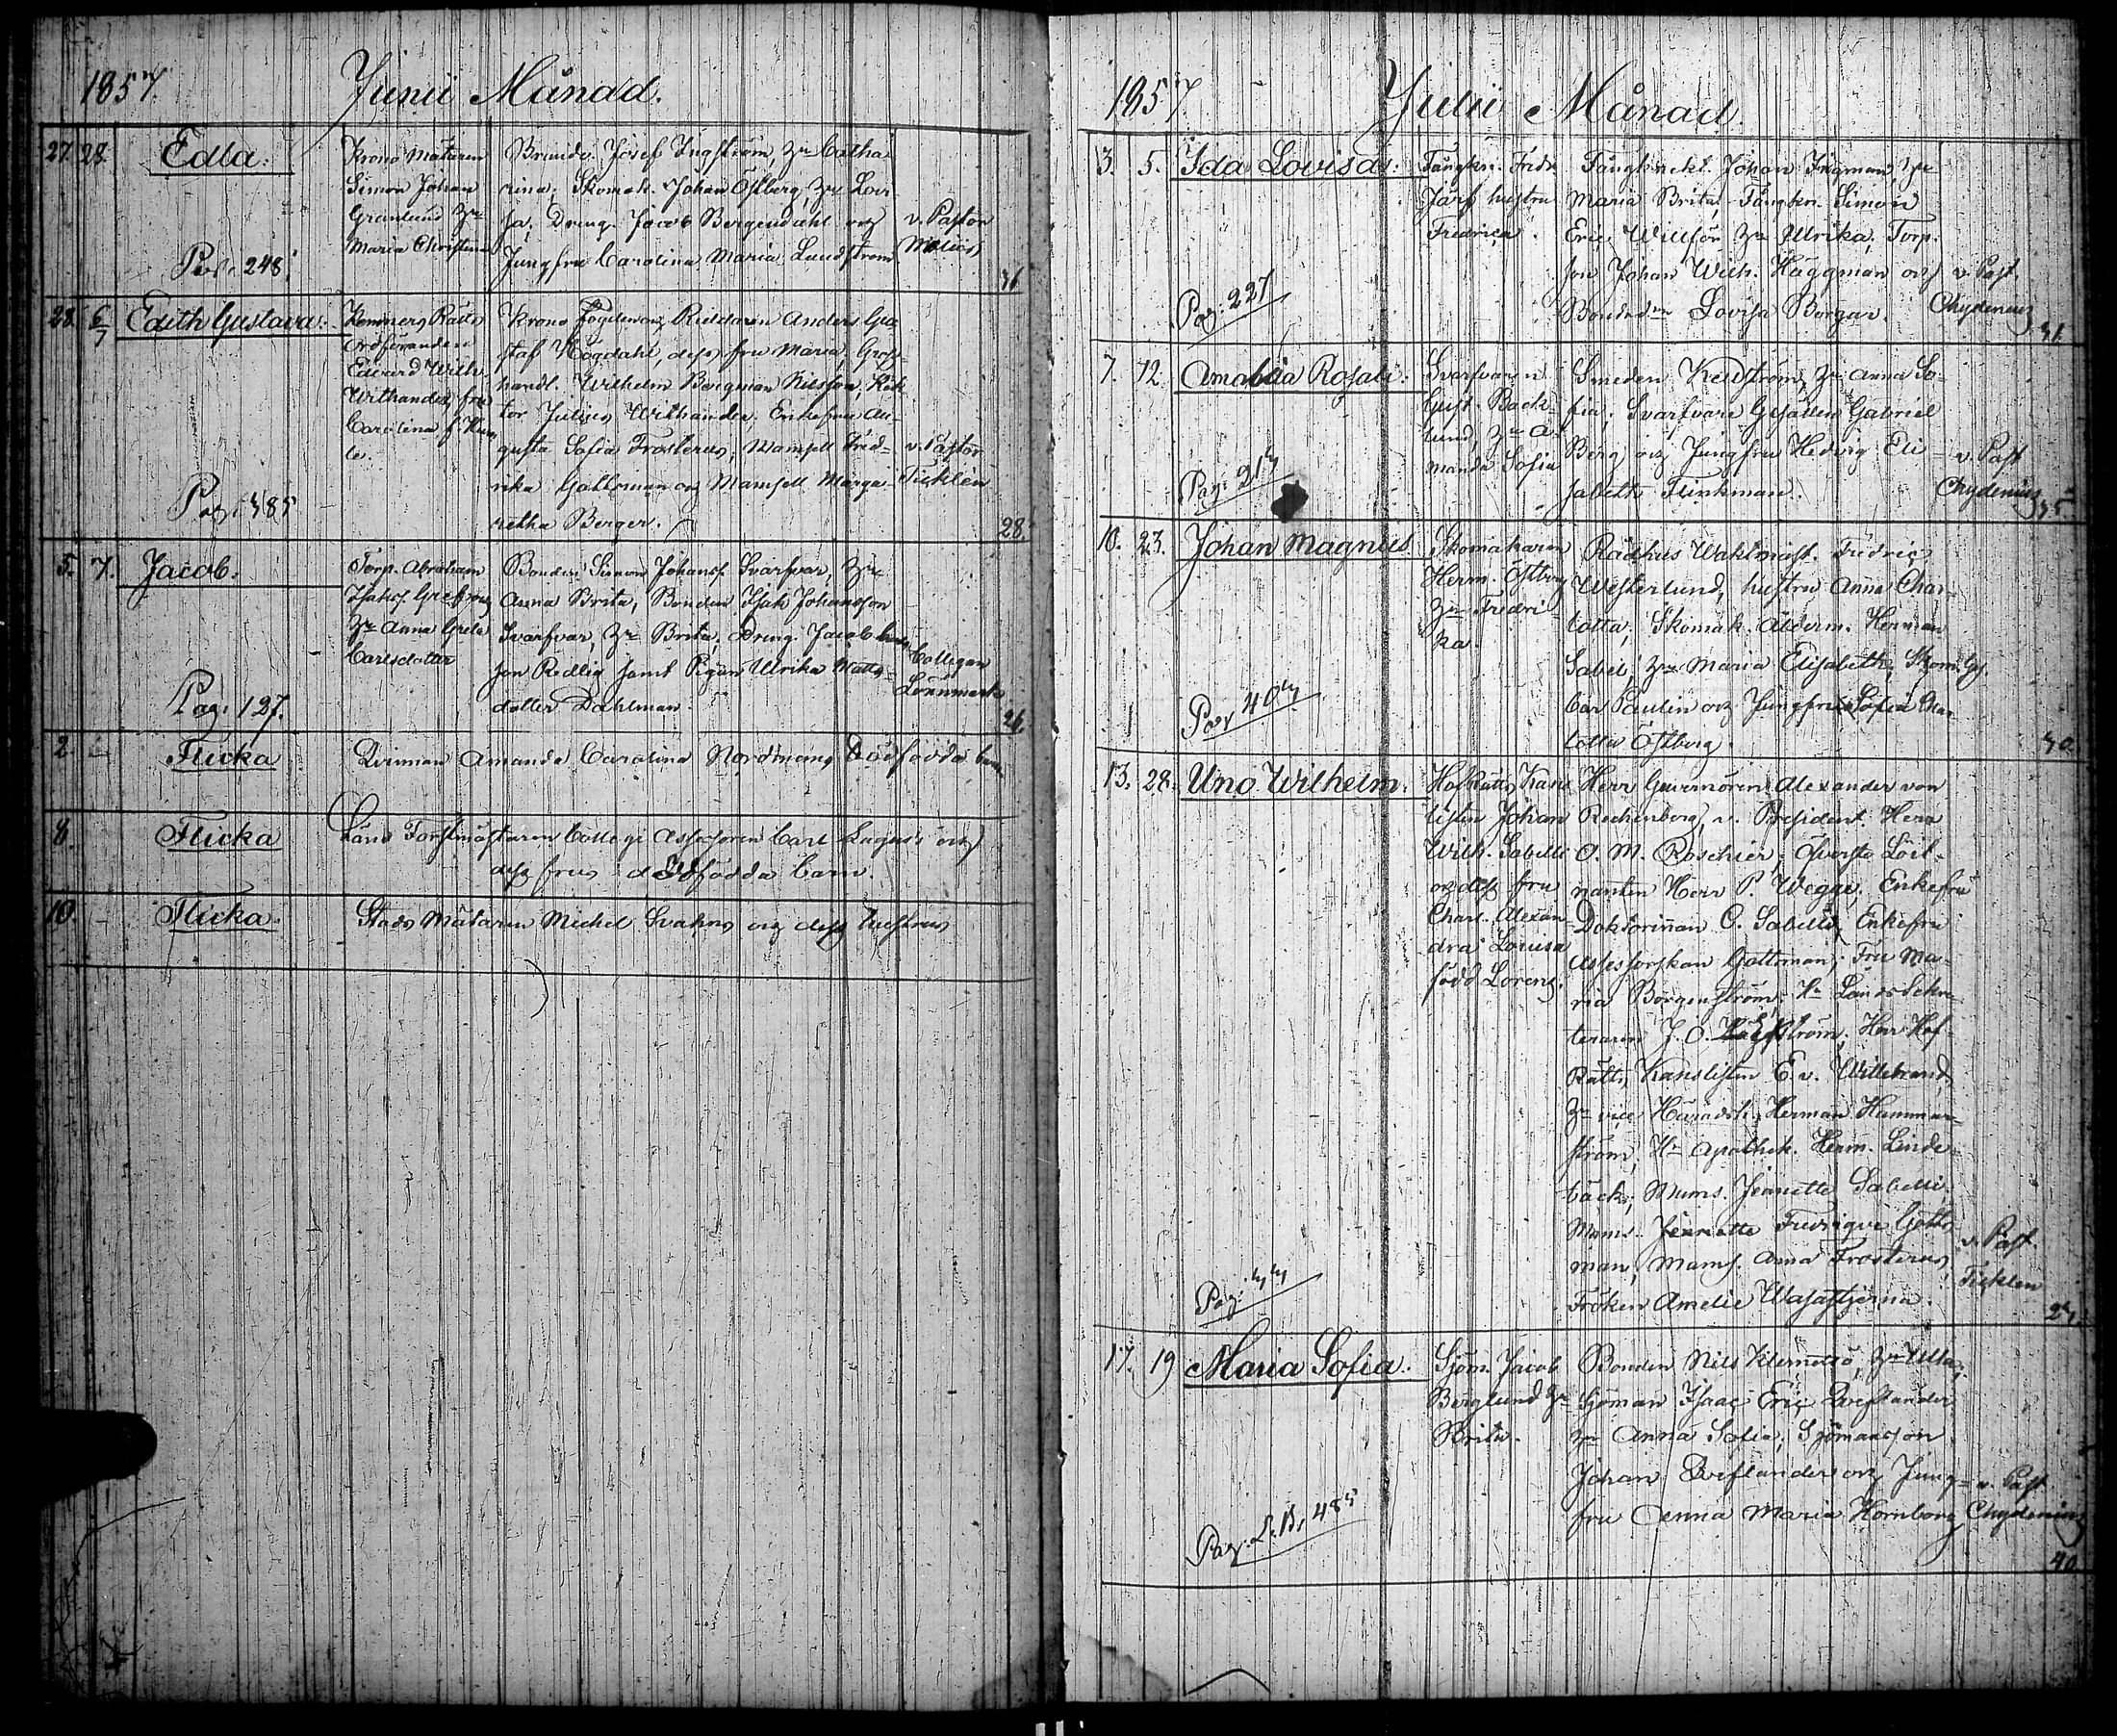 1857. Junii Månad.
27. 28. Edla.
Krono Mätaren
Simon Johan
Granlund Hu
Maria Christina
Brunds. Josef Ingström, Hu Catha
rina; Skomak. Johan Östberg, Hu Lovi
sa. Dräng. Jacob Bergendahl och
Jungfru Carolina Maria Lundström
v. Pastor
Pag. 248.
28. 6/7 Edith Gustava.
Kemners Rätts
Ordföranden
Edvard Wilh.
Withander, fru
Carolina f.
Krono Fogden och Riddaren Anders Gu
staf Högdahl, dess fru Maria. Gross
handl. Wilhelm Bergman Nilsson, Rek
tor Julius Withander. Enkefru Au
gusta Sofia Frosterus, Mamsell Fred
rika Gottsman och Mamsell Marga
retha Berger.
v. Pastor
Ticklén
28.
Pag. 385
5. 7. Jacob.
Torp. Abraham
Isaks. Gref och
Hu Anna Greta
Carlsdotter
Bonden Simon Johanss. Svarfvar, Hu
Anna Brita, Bonden Isak Johansson
Svarfvar, Hu Brita, Dräng. Jacob
son Redlig samt Pigan Ulrika Matts
dotter Dahlman.
Collegan
Lönnmark
26.
Pag. 127.
2. Flicka
Qvinnan Amanda Carolina Nordmans dödfödda barn
8. Flicka
Läns Forstmästaren College Assessoren Carl Lagus's och
dess frus dödfödda barn.
10. Flicka.
Stads Mätaren Michel Svahns och dess hustrus
1857 Julii Månad.
3. 5. Ida Lovisa.
Fångkn. Fredr.
Jarf hustru
Fredrica.
Fångknekt. Johan Ingman, Hu
Maria Brita, Fångkn. Simon
Eric Willför Hu Ulrika, Torp.
son Johan Wilh. Häggman och
Bonded:n Lovisa Borgar.
v. Past.
Chydenius
31.
Pag. 227
7. 12. Amalia Rosali.
Svarfvaren
Gust. Back
lund, Hu A
manda Sofia
Smeden Kedström, Hu Anna So
fia; Svarfvare Gesällen Gabriel
Berg och Jungfru Hedvig Eli
sabeth Flinkman.
v. Past
Chydenius
35.
Pag. 217
10. 23. Johan Magnus
Skomakaren
Herm. Östberg
Hu Fredri
ka.
Rådhus Waktmäst. Fredric
Westerlund, hustru Anna Char
lotta, Skomak.Ålderm. Herman
Sabel, Hu Maria Elisabeth, Skom. Gs.
Carl Paulin och Jungfru Sofia Char
lotta Östberg.
30.
Pag 407
13. 28. Uno Wilhelm.
HofRätts Kans
listen Johan
Wilh. Sabelli
och dess fru
Charl. Alexan
dra Lovisa
född Lorenz.
Herr Guvernören Alexander von
Rechenberg, v. President Herr
O. M. Roschier, Öfverste Löjt
nanten Herr P. Wegge, Enkefru
Doktorinnan C. Sabelli, Enkefru
Assessorskan Gottsman, Fru Ma
ria Borgenström, Hr Lands Sekre
teraren J. O.
Herr Hof
Rätts Kanslisten E. v. Willebrand,
Hr vice Häradsh. Herman Hammar
ström, Hr Apothek. Herm. Linde
bäck, Mams. Jeanette Sabelli,
Mams. Jeanette Fredrique Gotts
man, Mams. Anna Frosterus,
Fröken Amelie Wasastjerna.
v. Past.
Ticklén
27.
Pag. 44
17. 19 Maria Sofia.
Sjöm. Jacob
Berglund Hu
Brita.
Bonden Nils Klemetsö, Hu Ulla,
Sjöman Isaac Eric Qveflander,
Hu Anna Sofia, Sjömansson
Johan Qveflander och Jung
fru Anna Maria Hornborg
v. Past
Chydenius
40.
Pag. L. B. 485